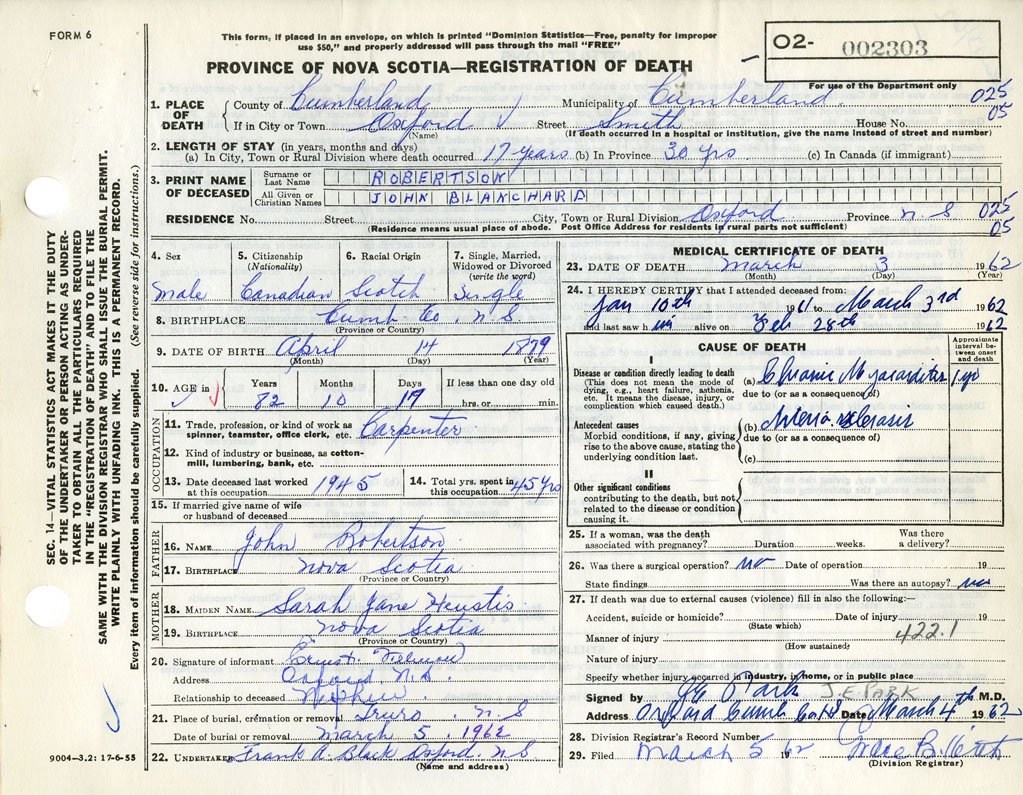 FORM 6
This form, if placed in an envelope, on which is printed "Dominion Statistics—Free, penalty for improper
use $50," and properly addressed will pass through the mail "FREE"
PROVINCE OF NOVA SCOTIA—REGISTRATION OF DEATH
O2- 002303
For use of the Department only
025
05
1. PLACE OF DEATH
County of Cumberland Municipality of Cumberland
If in City or Town Oxford Street Smith House No.
(Name) (If death occurred in a hospital or institution, give the name instead of street and number)
2. LENGTH OF STAY (in years, months and days)
(a) In City, Town or Rural Division where death occurred 17 years (b) In Province 30 yrs (c) In Canada (if immigrant)
3. PRINT NAME OF DECEASED
Surname or Last Name ROBERTSON
All Given or Christian Names JOHN BLANCHARD
RESIDENCE No. Street City, Town or Rural Division Oxford Province N.S 025
05
(Residence means usual place of abode. Post Office Address for residents in rural parts not sufficient)
4. Sex
Male
5. Citizenship (Nationality)
Canadian
6. Racial Origin
Scotch
7. Single, Married, Widowed or Divorced (write the word)
Single
8. BIRTHPLACE Cumb. Co. N.S
(Province or Country)
9. DATE OF BIRTH April 14 1879
(Month) (Day) (Year)
10. AGE in Years Months Days If less than one day old
82 10 19 hrs. or min.
OCCUPATION
11. Trade, profession, or kind of work as spinner, teamster, office clerk, etc. Carpenter
12. Kind of industry or business, as cotton-mill, lumbering, bank, etc.
13. Date deceased last worked at this occupation 1945
14. Total yrs. spent in this occupation 45 yrs
15. If married give name of wife or husband of deceased
FATHER
16. NAME John Robertson
17. BIRTHPLACE Nova Scotia
(Province or Country)
MOTHER
18. MAIDEN NAME Sarah Jane Heustis
19. BIRTHPLACE Nova Scotia
(Province or Country)
20. Signature of informant Ernest
Address Oxford, N.S.
Relationship to deceased Nephew
21. Place of burial, cremation or removal Truro, N.S
Date of burial or removal March 5, 1962
22. UNDERTAKER Frank A. Black Oxford N.S
(Name and address)
MEDICAL CERTIFICATE OF DEATH
23. DATE OF DEATH March 3 1962
(Month) (Day) (Year)
24. I HEREBY CERTIFY that I attended deceased from:
Jan 10th 1961 to March 3rd 1962
and last saw him alive on Feb 28th 1962
CAUSE OF DEATH
Approximate interval between onset and death
I
Disease or condition directly leading to death
(This does not mean the mode of dying, e.g., heart failure, asthenia, etc. It means the disease, injury, or complication which caused death.)
(a) Chronic Myocarditis 1 yr
due to (or as a consequence of)
Antecedent causes
Morbid conditions, if any, giving rise to the above cause, stating the underlying condition last.
(b)
due to (or as a consequence of)
(c)
II
Other significant conditions
contributing to the death, but not related to the disease or condition causing it.
25. If a woman, was the death associated with pregnancy? Duration weeks. Was there a delivery?
26. Was there a surgical operation? no Date of operation 19
State findings Was there an autopsy? no
27. If death was due to external causes (violence) fill in also the following:—
Accident, suicide or homicide? Date of injury 19
(State which)
422.1
Manner of injury
(How sustained)
Nature of injury
Specify whether injury occurred in industry, in home, or in public place
Signed by J E Park J.E. PARK M.D.
Address Oxford Cumb Co N.S Date March 4th 1962
28. Division Registrar's Record Number
29. Filed March 5 1962
(Division Registrar)
SEC. 14—VITAL STATISTICS ACT MAKES IT THE DUTY
OF THE UNDERTAKER OR PERSON ACTING AS UNDER-
TAKER TO OBTAIN ALL THE PARTICULARS REQUIRED
IN THE "REGISTRATION OF DEATH" AND TO FILE THE
SAME WITH THE DIVISION REGISTRAR WHO SHALL ISSUE THE BURIAL PERMIT.
WRITE PLAINLY WITH UNFADING INK. THIS IS A PERMANENT RECORD.
Every item of information should be carefully supplied. (See reverse side for instructions.)
9004—3.2: 17-6-55